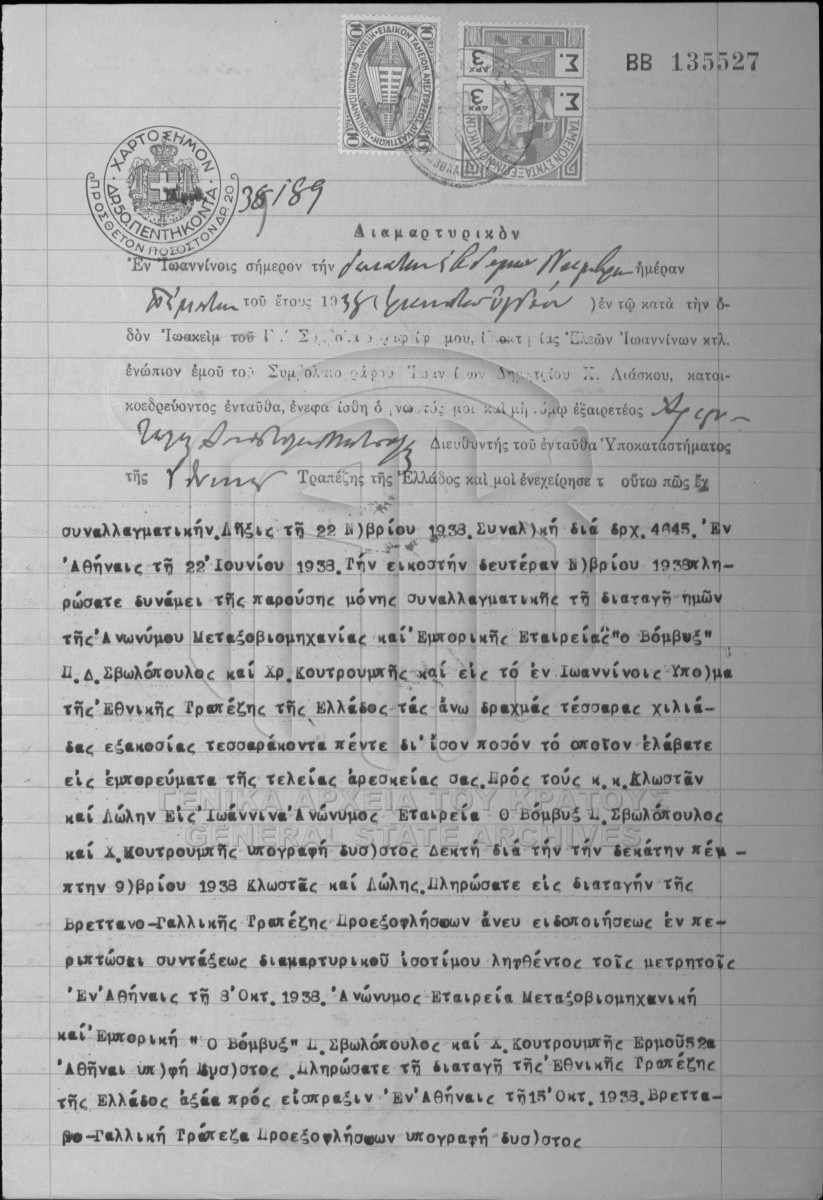 ΒΒ 135527
ΕΙΔΙΚΟΝ ΤΑΜΕΙΟΝ ΑΝΕΓΕΡΣΕΩΣ ΔΙΚΑΣΤΙΚΩΝ ΦΥΛΑΚΩΝ ΙΩΑΝΝΙΝΩΝ
10 10
Σ. ΔΡΧ 3
Σ. ΔΡΧ 3
ΤΑΜΕΙΟΝ ΣΥΝΤΑΞΕΩΝ ΝΟΜΙΚΩΝ
ΧΑΡΤΟΣΗΜΟΝ
ΔΡ. 50. ΠΕΝΤΗΚΟΝΤΑ
ΠΡΟΣΘΕΤΟΝ ΠΟΣΟΣΤΟΝ ΔΡ. 20
189
Διαμαρτυρικὸν
Ἐν Ἰωαννίνοις σήμερον τὴν ἡμέραν
τοῦ ἔτους 193 ) ἐν τῷ κατὰ τὴν ὁ-
δὸν Ἰωακεὶμ τοῦ Γ΄ μου, Ἐλεῶν Ἰωαννίνων κτλ.
ἐνώπιον ἐμοῦ τοῦ Συμβολαιογράφου Ἰωαννίνων Δημητρίου Χ. Λιάσκου, κατοι-
κοεδρεύοντος ἐνταῦθα, ἐνεφανίσθη ὁ γνωστός μοι καὶ μὴ ἐξαιρετέος
Διευθυντὴς τοῦ ἐνταῦθα Ὑποκαταστήματος
τῆς Τραπέζης τῆς Ἑλλάδος καὶ μοὶ ἐνεχείρησε τ οὕτω πῶς ἔχ
συναλλαγματικήν. Λῆξις τῇ 22 Ν)βρίου 1938. Συναλ)κή διά δρχ. 4645. Ἐν
Ἀθήναις τῇ 22 Ἰουνίου 1938. Τήν εικοστήν δευτέραν Ν)βρίου 1938πλη-
ρώσατε δυνάμει τῆς παρούσης μόνης συναλλαγματικῆς τῇ διαταγῇ ημῶν
τῆς Ἀνωνύμου Μεταξοβιομηχανίας καί Ἐμπορικῆς Εταιρείας "ο Βόμβυξ"
Π.Δ.Σβωλόπουλος καί Χρ.Κουτρουμπῆς καί εἰς τό ἐν Ιωαννίνοις Υπο)μα
τῆς Ἐθνικῆς Τραπέζης τῆς Ελλάδος τάς ἄνω δραχμάς τέσσαρας χιλιά-
δας εξακοσίας τεσσαράκοντα πέντε δι' ἴσον ποσόν τό οποῖον ἐλάβατε
εἰς ἐμπορεύματα τῆς τελείας ἀρεσκείας σας. Πρός τους κ.κ.Κλωστᾶν
καί Λώλην Εἰς Ἰωάννινα Ἀνώνυμος Εταιρεία Ο Βόμβυξ Π.Σβωλόπουλος
καί Χ.Κουτρουμπῆς υπογραφή δυσ)στος Δεκτή διά τήν τήν δεκάτην πέμ-
πτην 9)βρίου 1938 Κλωστᾶς καί Λώλης. Πληρώσατε εἰς διαταγήν τῆς
Βρεττανο-Γαλλικῆς Τραπέζης Προεξοφλήσεων ἄνευ ειδοποιήσεως ἐν πε-
ριπτώσει συντάξεως διαμαρτυρικοῦ ἰσοτίμου ληφθέντος τοῖς μετρητοῖς
Ἐν Ἀθήναις τῇ 8 Οκτ. 1938. Ἀνώνυμος Εταιρεία Μεταξοβιομηχανική
καί Ἐμπορική "Ο Βόμβυξ" Π.Σβωλόπουλος καί Χ.Κουτρουμπῆς Ερμοῦ52α
Ἀθῆναι υπ)φή δυσ)στος. Πληρώσατε τῇ διαταγῇ τῆς Ἐθνικῆς Τραπέζης
τῆς Ελλάδος ἀξία πρός εἴσπραξιν Ἐν Ἀθήναις τῇ 15 Ὀκτ. 1938. Βρεττα-
νο-Γαλλική Τράπεζα Προεξοφλήσεων υπογραφή δυσ)στος
ΓΕΝΙΚΑ ΑΡΧΕΙΑ ΤΟΥ ΚΡΑΤΟΥΣ
GENERAL STATE ARCHIVES